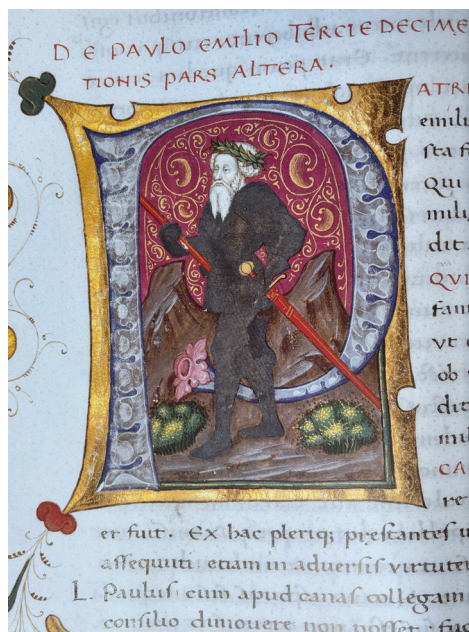 DE PAVLO EMILIO TERCIE DECIME
TIONIS PARS ALTERA.
ATRI
emilu
sta f
Qui
mili
dit
QVI
fam
vt
ob
dit
mi
CA
re
er fuit. Ex hac pleriq; prestantes u
assequuti etiam in adversis virtute
L. Paulus cum apud canas collegam
consilio dimovere non posset: fug